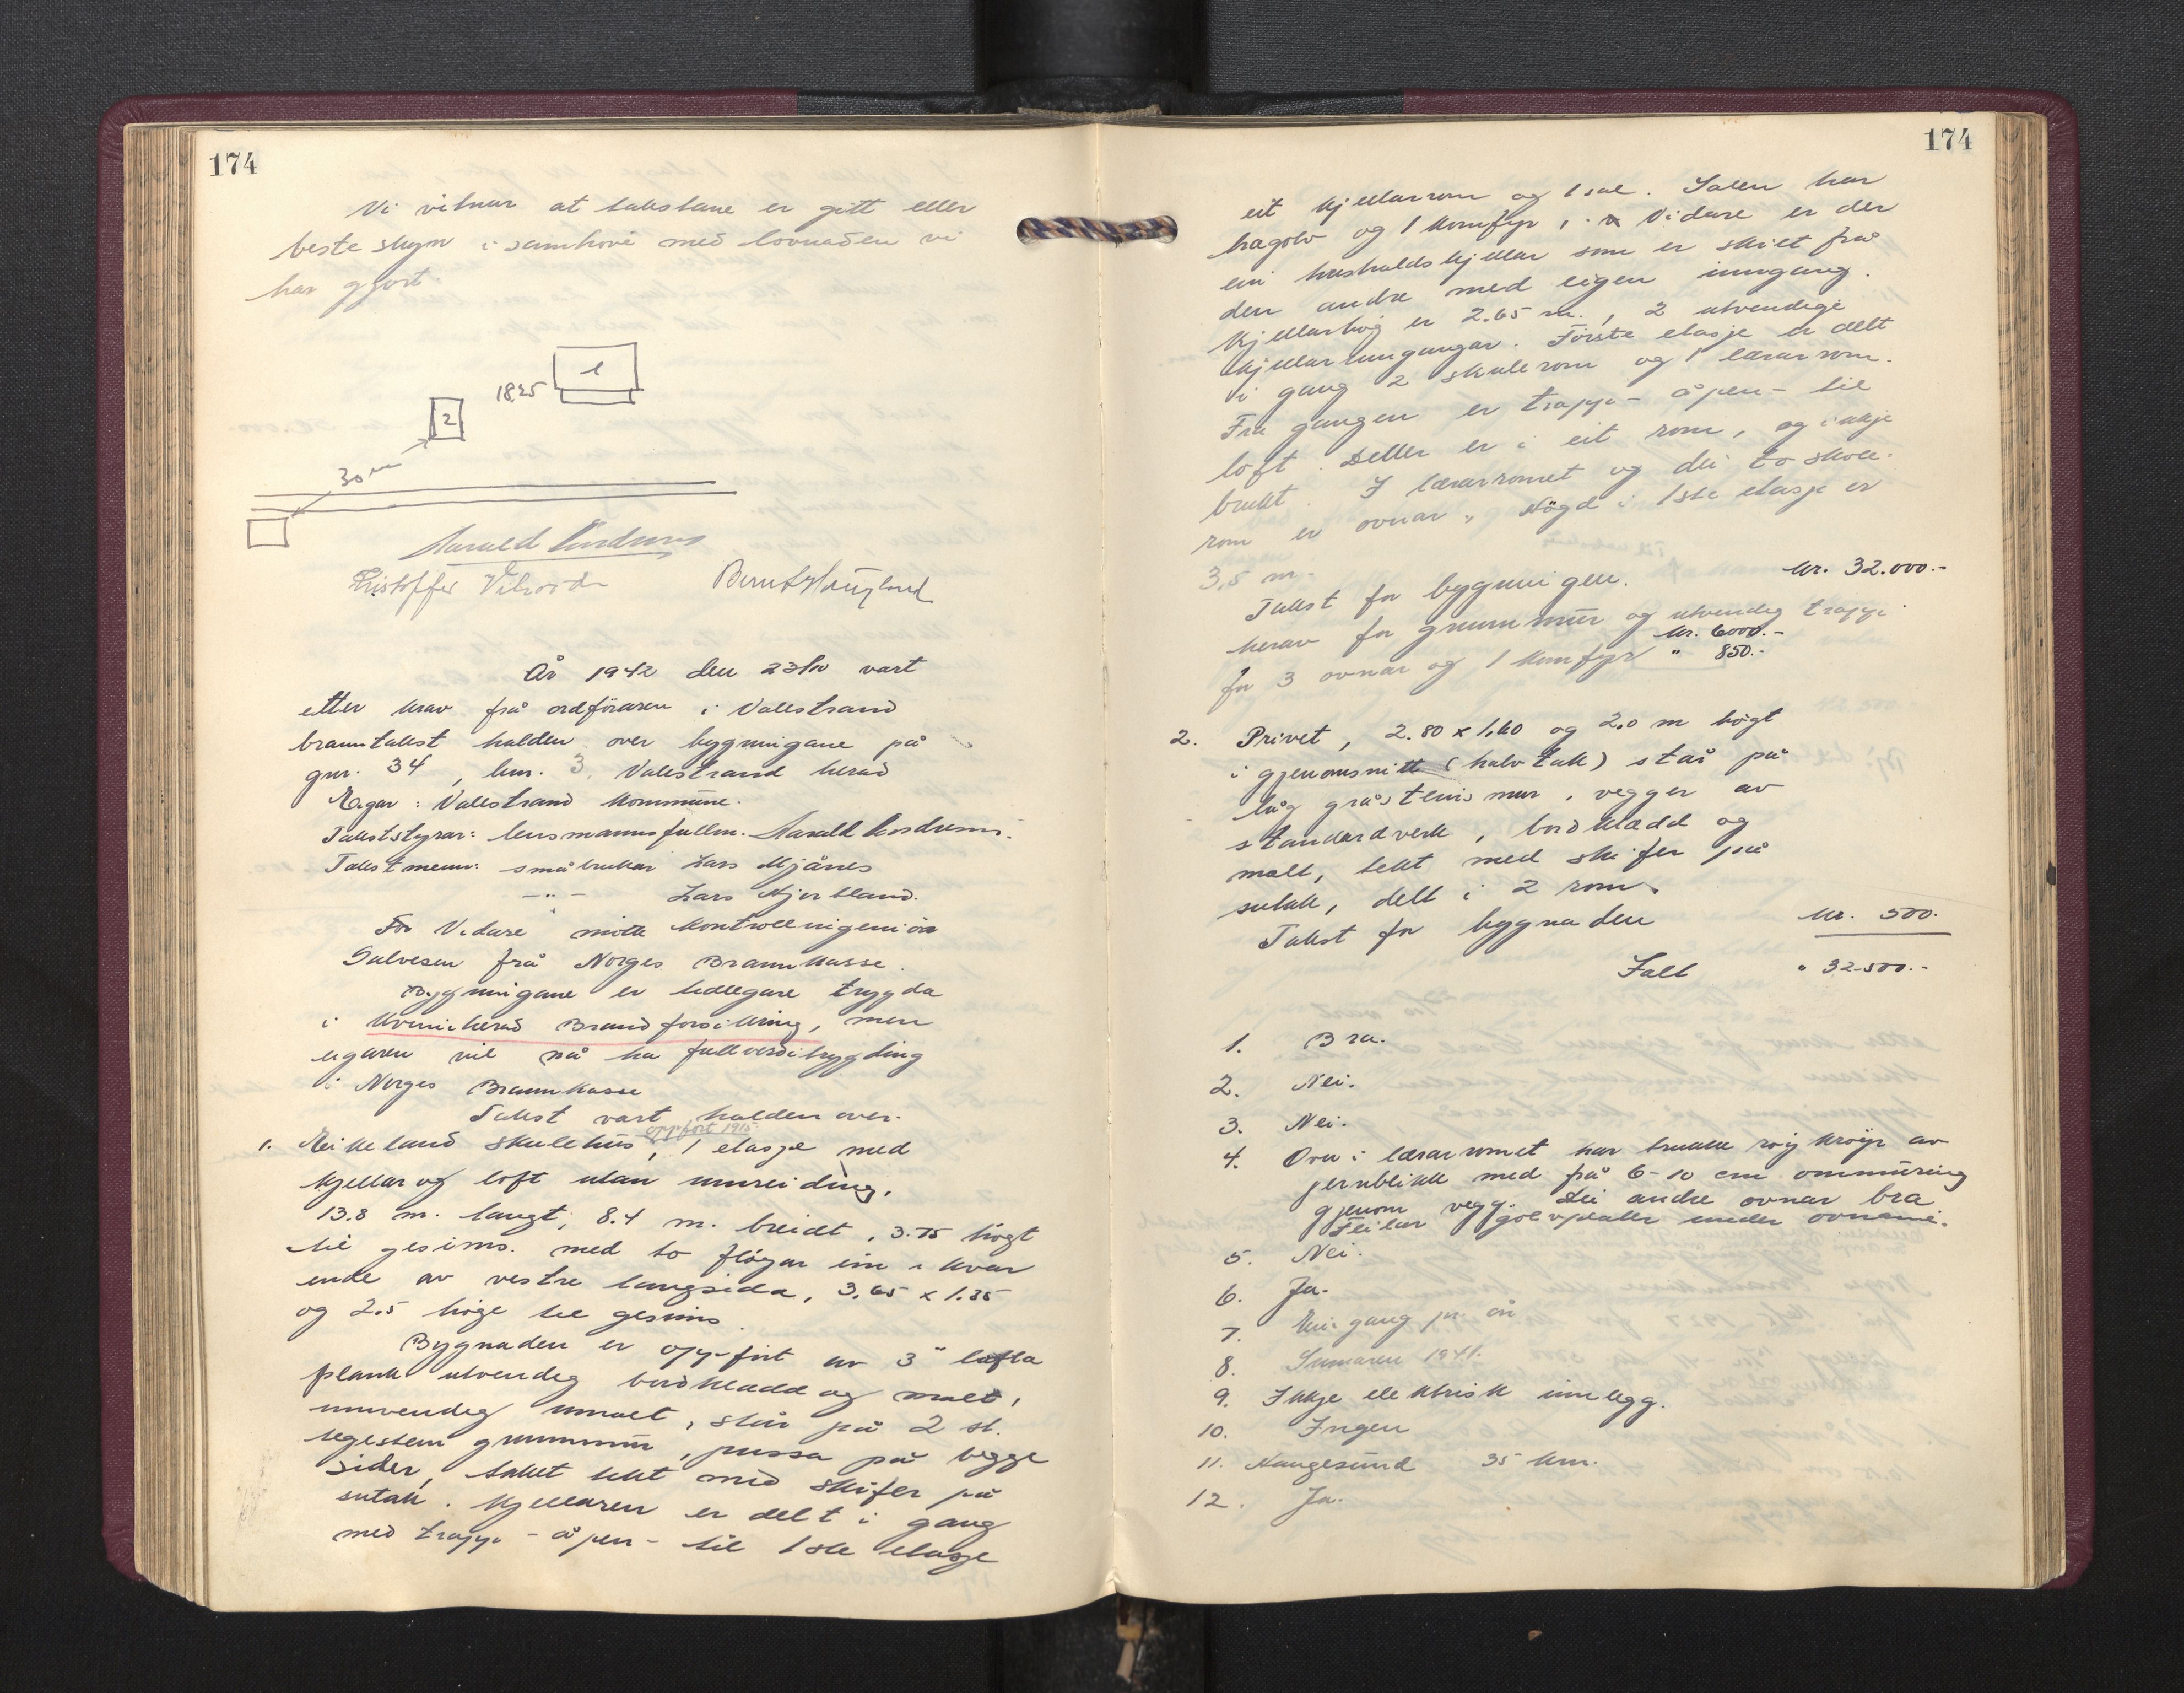 174
Vi vitnar at takstane er gitt etter
beste skyn i samhøve med lovnaden vi
har gjort.
1
18.25
2
30 m
Harald
Kristoffer
Bernt Haugland
År 1942 den 23/10 vart
etter krav frå ordføraren i Valestrand
branntakst halden over bygningane på
gnr. 34, bnr. 3, Valestrand herad
Eigar: Valestrand kommune.
Takststyrar: lensmannsfullm. Harald
Takstmenn: småbrukar Lars Mjånes
-"- Lars
For Vidare møtte kontrollingeniør
Salvesen frå Norges Brannkasse.
Bygningane er tidlegare trygda
i Kvinnherad Brandforsikring, men
eigaren vil nå ha fullverditrygding
i Norges Brannkasse
Takst vart halden over.
oppført 1915
1. Eikeland skulehus, 1 etasje med
kjellar og loft utan innreiding,
13.8 m. langt, 8.4 m. breidt, 3.75 högt
til gesims. med to fløgar ein i kvar
ende av vestre langsida, 3.65 x 1.35
og 2.5 høge til gesims.
Bygnaden er oppført av 3" lafta
plank utvendig bordkledd og malt,
innvendig umalt, står på 2 st.
tegelstein grunnmur, pussa på begge
sider, taket tekt med skifer på
sutak. Kjellaren er delt i gang
med trapp - åpen - til 1ste etasje
174
eit kjellarrom og 1 sal. Salen har
tregolv og 1 komfyr, Vidare er der
ein hushaldskjellar som er skilt frå
den andre med eigen inngang.
Kjellarhøg er 2.65 m., 2 utvendige
kjellarinngangar. Første etasje er delt
i gang 2 skulerom og 1 lærarrom.
Fra gangen er trapp - åpen - til
loft. Dette er i eit rom, og ikkje
brukt. I lærarromet og dei to skole-
rom er ovnar. Högd i 1ste etasje er
3,5 m.
Takst for bygningen. kr. 32.000.-
herav for grunnmur og utvendig trapp
kr. 6000.-
for 3 ovnar og 1 komfyr " 850.-
2. Privet, 2.80 x 1,60 og 2,0 m högt
i gjenomsnitt (halvtak) står på
låg gråsteinsmur, vegger av
standardverk, bordkledd og
malt, tekt med skifer på
sutak, delt i 2 rom.
Takst for bygnaden kr. 500.
Ialt " 32.500.-
1. Bra.
2. Nei.
3. Nei.
4. Ovn i lærarromet har brukke röykröyr av
jernblikk med frå 6-10 cm ommuring
gjenom vegg. Dei andre ovnar bra
Feilar golvplater under ovnane.
5. Nei.
6. Ja.
7. Ein gang pr. år
8. Sumaren 1941.
9. Ikkje elektrisk innlegg.
10. Ingen
11. Haugesund 35 km.
12. Ja.